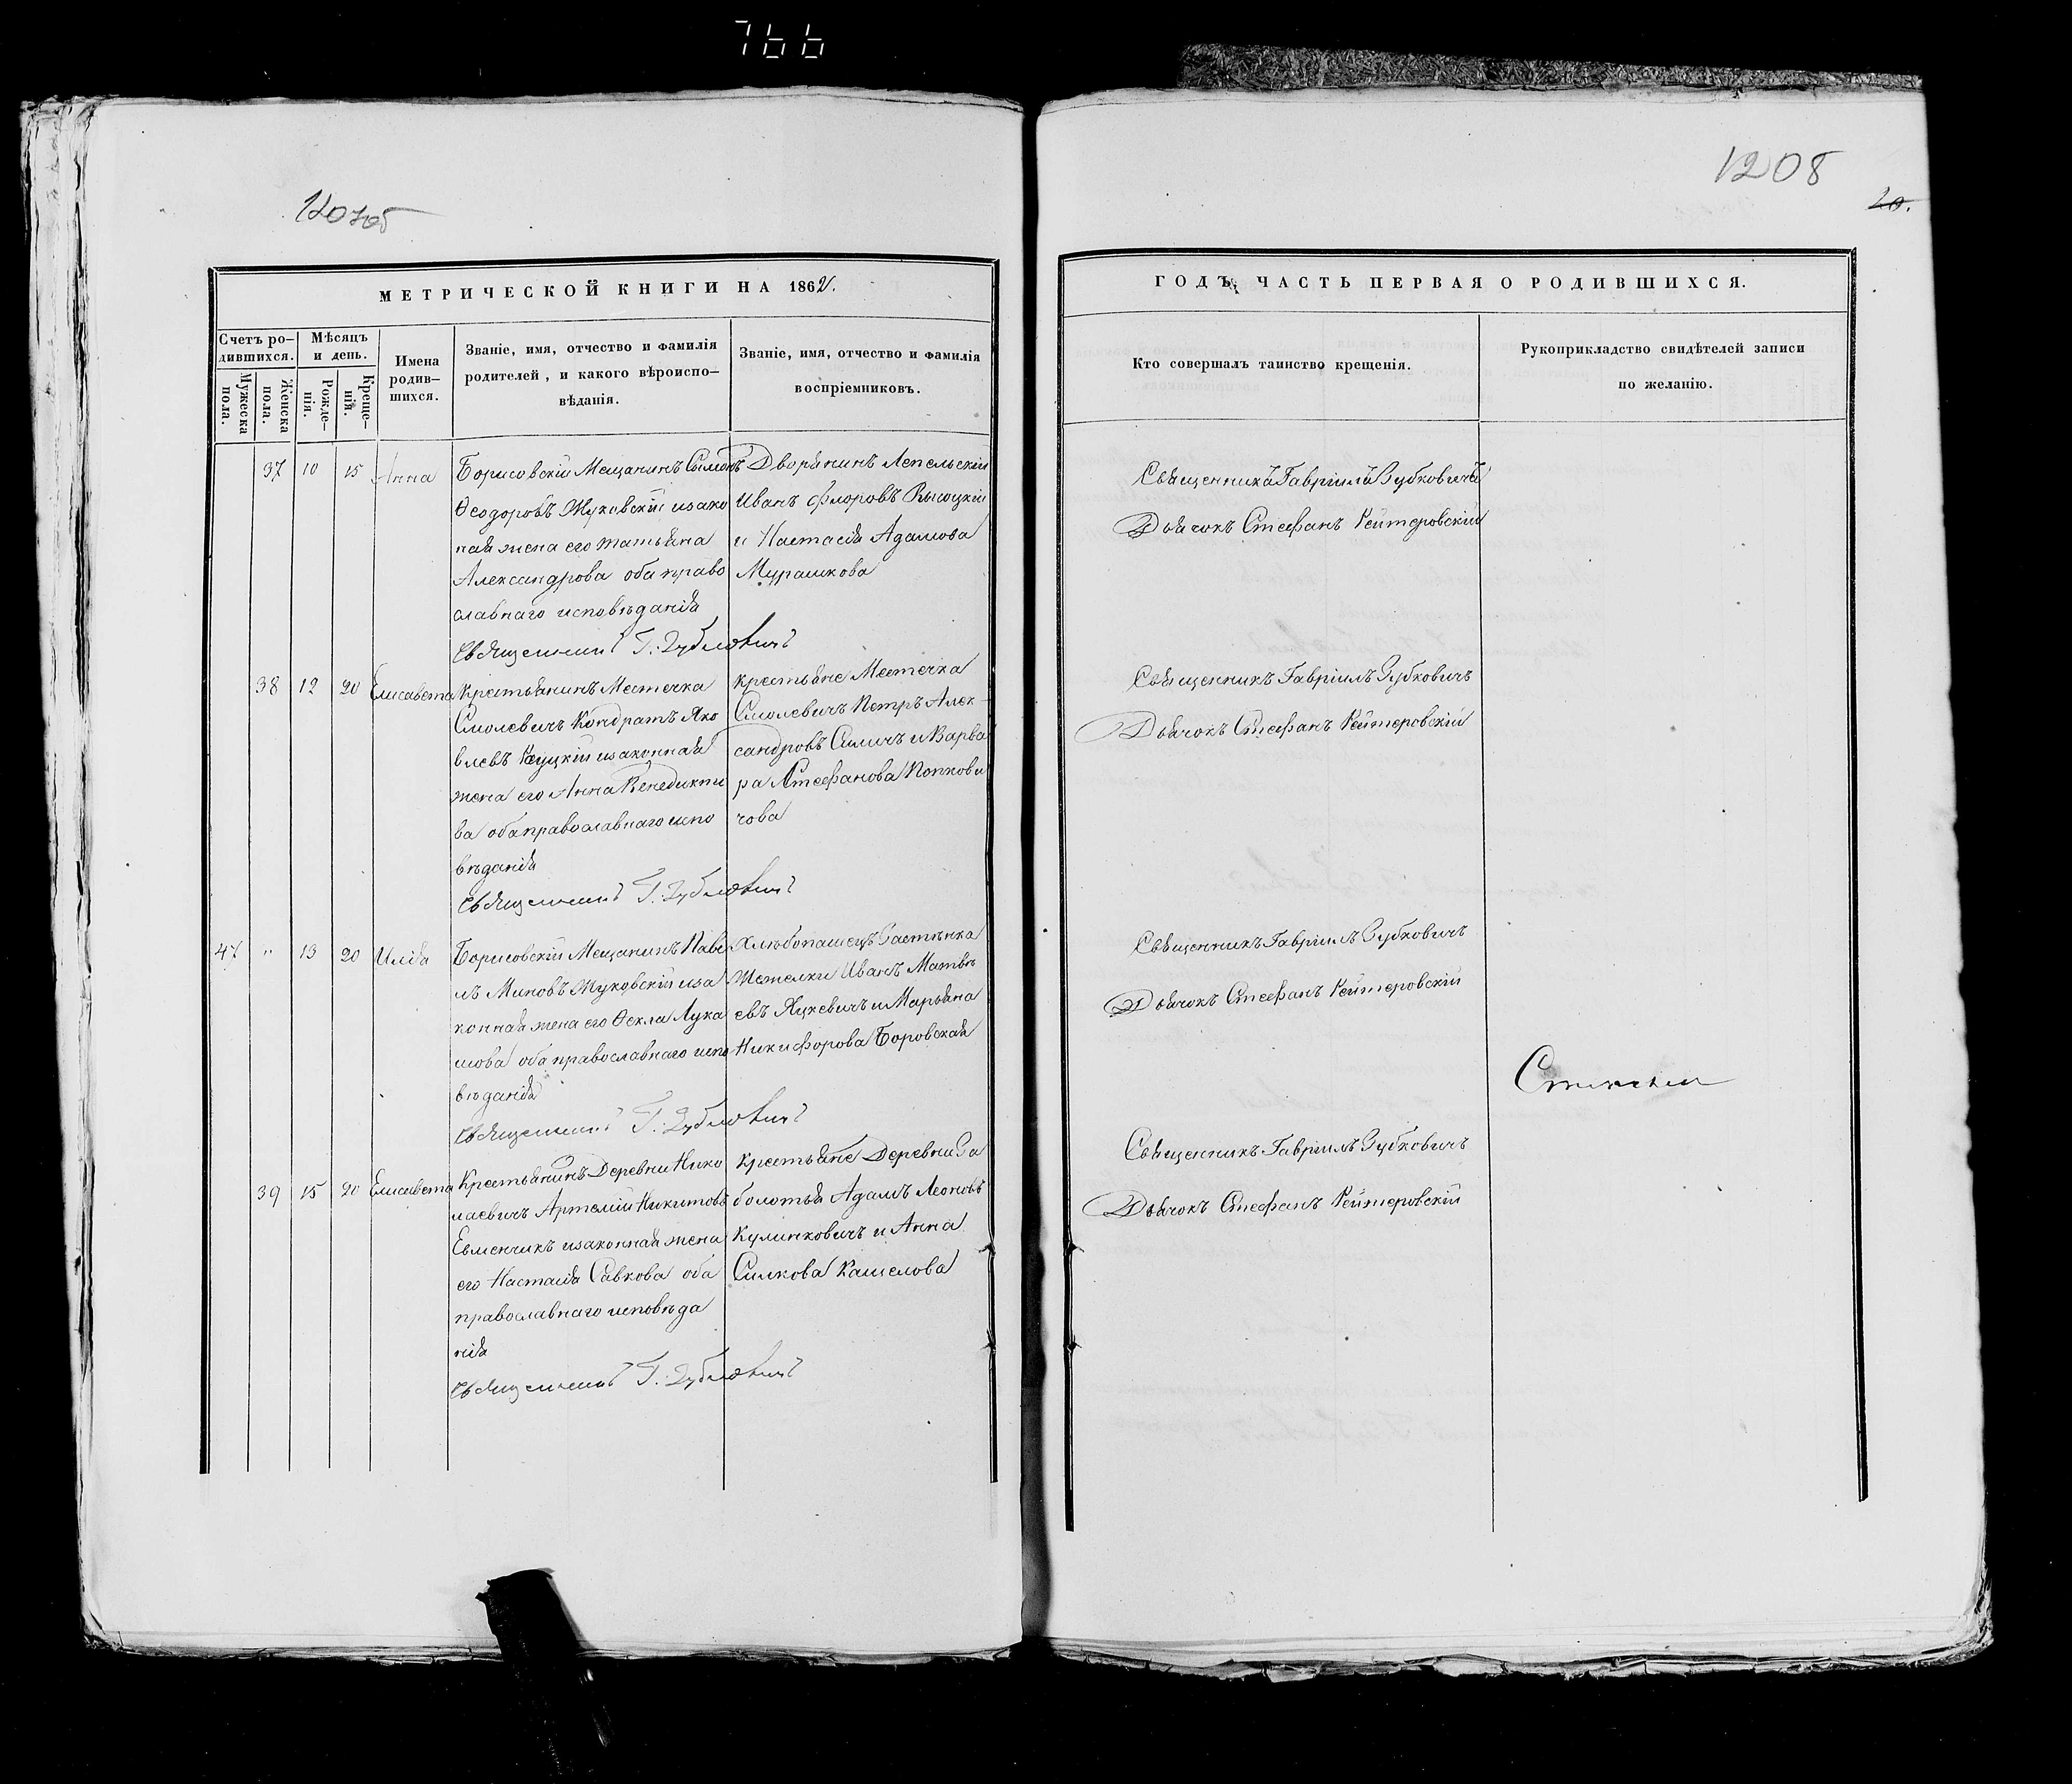 766
1207об
1208
20.
МЕТРИЧЕСКОЙ КНИГИ НА 1862.
ГОДЪ, ЧАСТЬ ПЕРВАЯ О РОДИВШИХСЯ.
Счетъ ро-
дившихся.
Мужеска
пола.
Женска
пола.
Мѣсяцъ
и день.
Рожде-
нія.
Креще-
нія.
Имена
родив-
шихся.
Званіе, имя, отчество и фамилія
родителей, и какого вѣроиспо-
вѣданія.
Званіе, имя, отчество и фамилія
воспріемниковъ.
Кто совершалъ таинство крещенія.
Рукоприкладство свидѣтелей записи
по желанію.
37 10 15 Анна
Борисовскій Мещанинъ Симонъ
Ѳеодоровъ Жуковскій изако
ная жена его Татьяна
Александрова оба право
славнаго исповѣданія
Священникъ Г. Зубковичъ
Дворянинъ Лепельскій
Иванъ Флоровъ Высоцкій
и Настасія Адамова
Мурашкова
Священникъ Гавріилъ Зубковичъ
Дьячокъ Стефанъ Рейтеровскій
38 12 20 Елисавета
Крестьянинъ Местечка
Смолевичъ Кондратъ Яко
влевъ Куцкій изаконная
жена его Анна Венедикти
ва оба православнаго испо
вѣданія
Священникъ Г. Зубковичъ
Крестьяне Местечка
Смолевичъ Петръ Алек-
сандровъ Силичъ и Варва
ра Стефанова Попкови
чова
Священникъ Гавріилъ Зубковичъ
Дьячокъ Стефанъ Рейтеровскій
47 " 13 20 Илія
Борисовскій Мещанинъ Паве
лъ Миновъ Жуковскій иза
конная жена его Ѳекла Лука
шова оба православнаго испо
вѣданія
Священникъ Г. Зубковичъ
Хлѣбопашецъ Застѣнка
Жетелки Иванъ Матвѣ
евъ Яцкевичъ и Марьяна
Никифорова Боровская
Священникъ Гавріилъ Зубковичъ
Дьячокъ Стефанъ Рейтеровскій
39 15 20 Елисавета
Крестьянинъ Деревни Нико
лаевичъ Артемій Никитовъ
Евменчикъ изаконная жена
его Настасія Савкова оба
православнаго исповѣда
нія
Священникъ Г. Зубковичъ
Крестьяне Деревни За
болотья Адамъ Леоновъ
Кулинковичъ и Анна
Силкова Кашелова
Священникъ Гавріилъ Зубковичъ
Дьячокъ Стефанъ Рейтеровскій